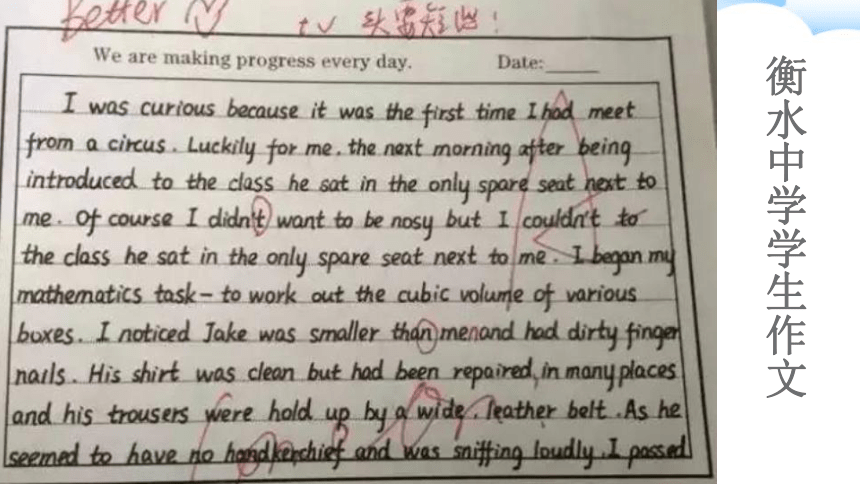 better
t v 头要短些!
We are making progress every day. Date:
I was curious because it was the first time I had meet
from a circus. Luckily for me. the next morning after being
introduced to the class he sat in the only spare seat next to
me. Of course I didn't want to be nosy but I couldn't to
the class he sat in the only spare seat next to me. I began my
mathematics task - to work out the cubic volume of various
boxes. I noticed Jake was smaller than menand had dirty finger
nails. His shirt was clean but had been repaired, in many places
and his trousers were hold up by a wide, leather belt. As he
seemed to have no handkerchief and was sniffing loudly. I passed
衡水中学学生作文